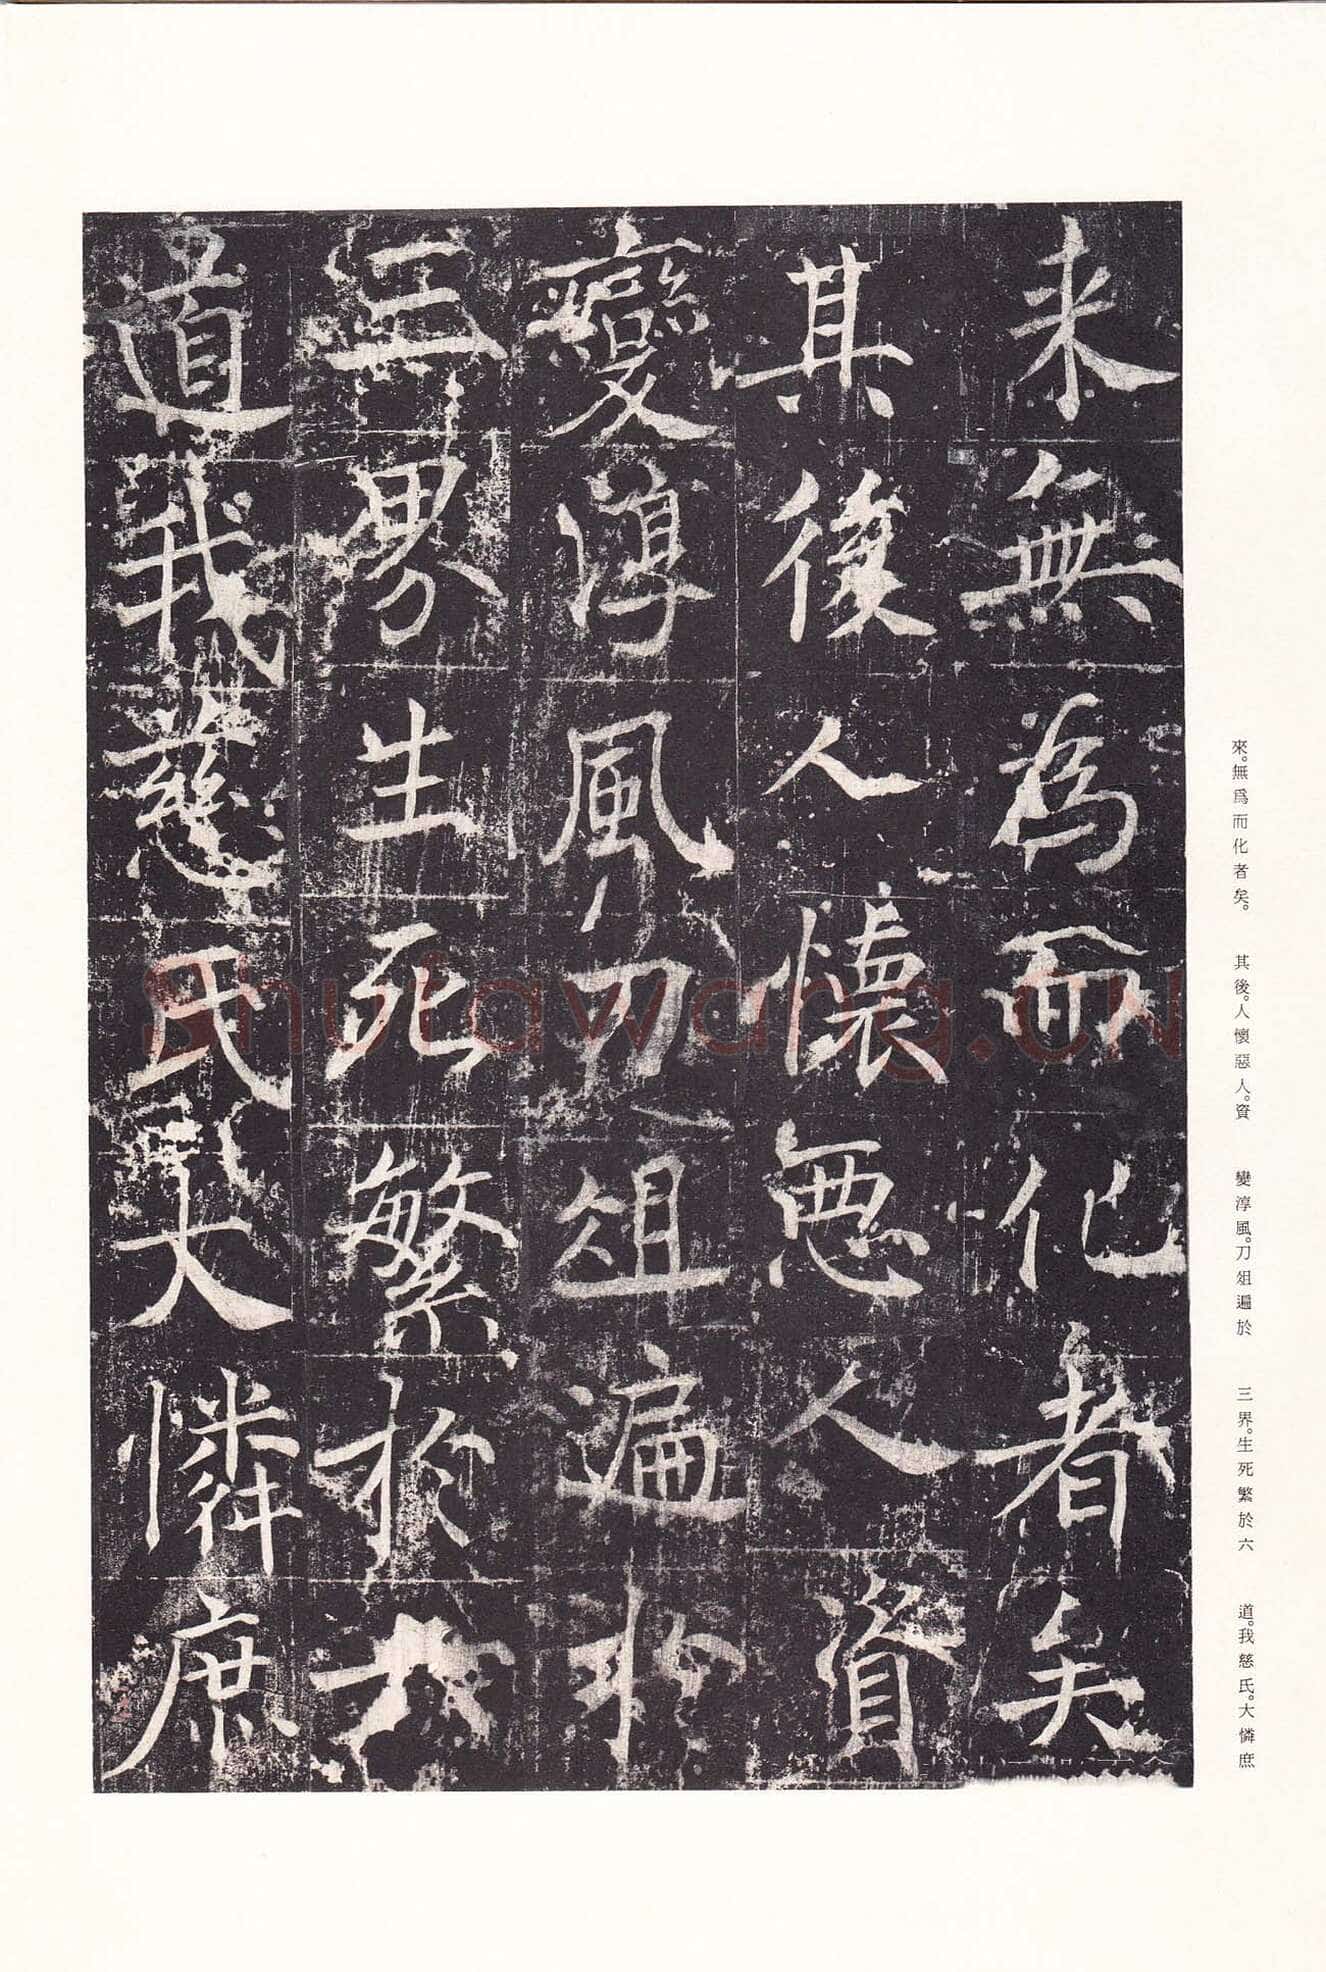 来無為而化者矣
其後人懷惡人資
變淳風刀俎遍於
三界生死繁於六
道我慈氏大憐庶
來。無爲而化者矣。 其後。人懷惡人。資 變淳風。刀俎遍於 三界。生死繁於六 道。我慈氏。大憐庶
shutawang.CN